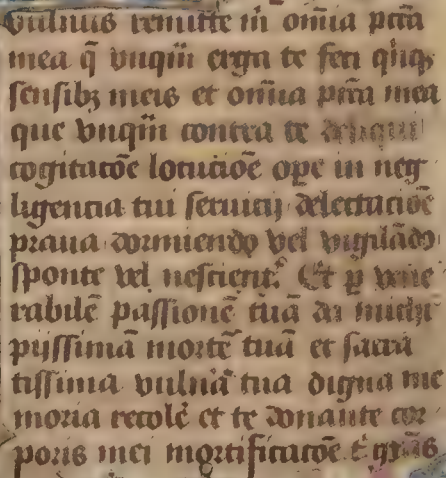 vulnus remitte m̄ om̄ia pctā
mea q̄ vnqm̄ erga te feci q̄nqꝫ
sensibꝫ meis et om̄ia pctā mea
que vnqm̄ contra te deliqui
cogitacōe locucōe ope in neg
ligencia tui seruicij delectaciōe
praua dormiendo vel vigilādo
sponte vel nescient᷑. Et ꝑ vene
rabilē passionē tuā da michi
pijssimā mortē tuā et sacra
tissima vulna᷑ tua digna me
moria recolē᷑ et te donante cor
poris mei mortificatōe